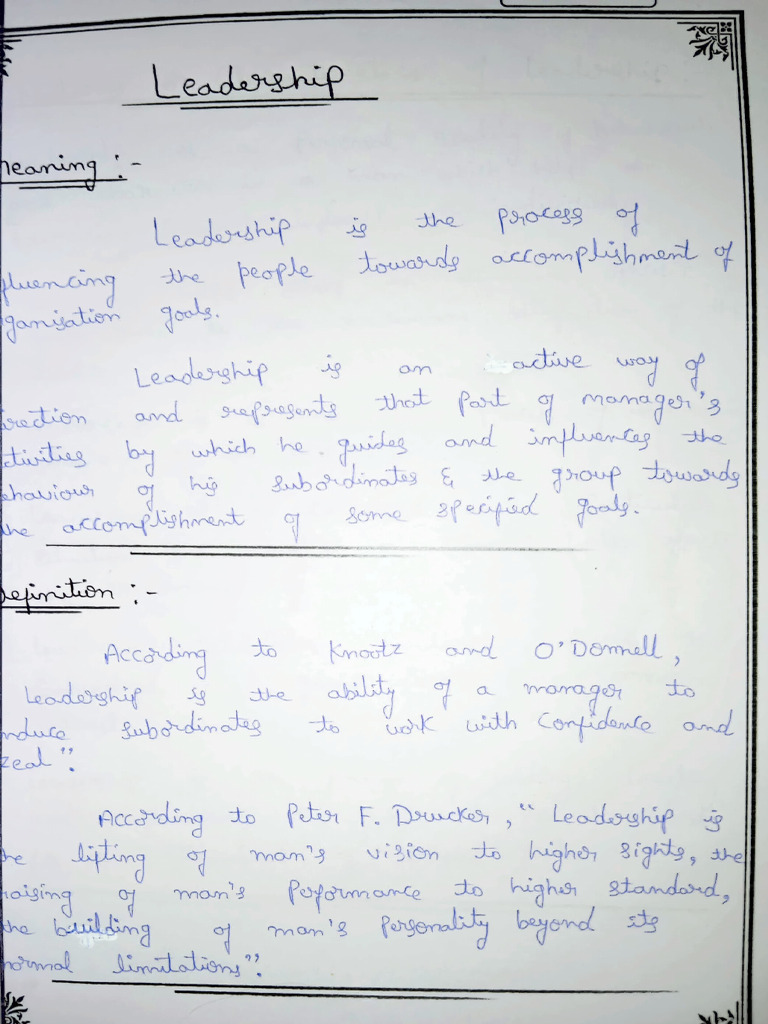 Leadership
meaning :-
Leadership is the process of
fluencing the people towards accomplishment of
ganisation goals.
Leadership is an active way of
irection and represents that part of manager's
ctivities by which he guides and influences the
ehaviour of his subordinates & the group towards
the accomplishment of some specified goals.
Definition :-
According to Knootz and O'Donnell,
Leadership is the ability of a manager to
nduce subordinates to work with confidence and
zeal".
According to Peter F. Drucker, "Leadership is
he lifting of man's vision to higher sights, the
raising of man's Performance to higher standard,
the building of man's Personality beyond its
normal limitations".